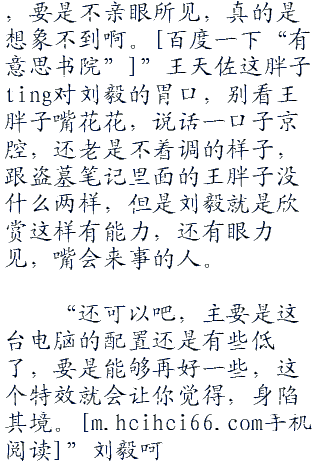 ，要是不亲眼所见，真的是
想象不到啊。[百度一下“有
意思书院”]”王天佐这胖子
ting对刘毅的胃口，别看王
胖子嘴花花，说话一口子京
腔，还老是不着调的样子，
跟盗墓笔记里面的王胖子没
什么两样，但是刘毅就是欣
赏这样有能力，还有眼力
见，嘴会来事的人。
“还可以吧，主要是这
台电脑的配置还是有些低
了，要是能够再好一些，这
个特效就会让你觉得，身陷
其境。[m.hcihci66.com手机
阅读]”刘毅呵